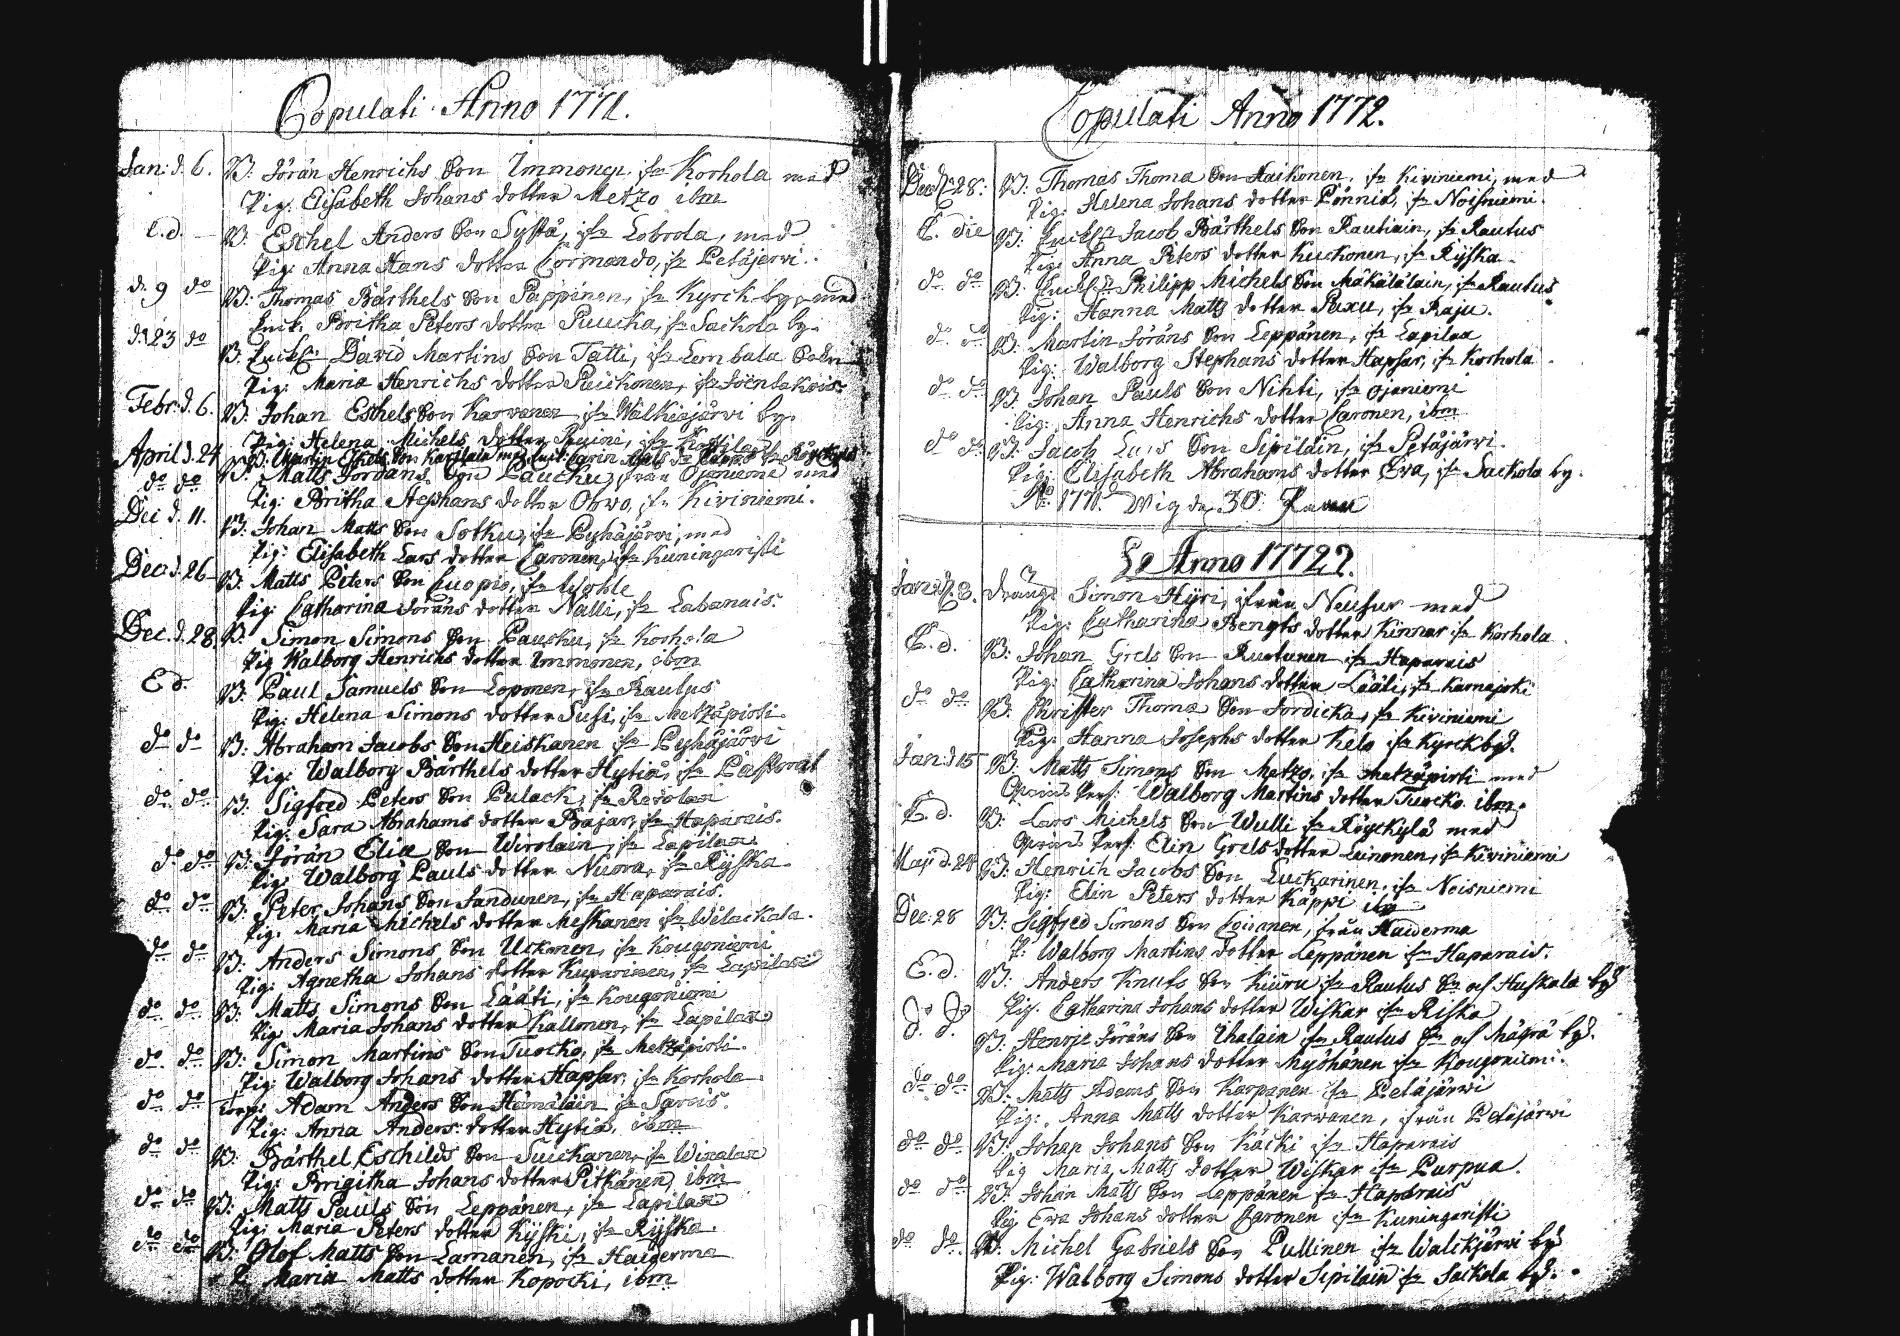 Copulati Anno 1771.
Jan: d. 6. B: Jörän Henrichs Son Immonen, ifr Korhola med
Pig. Elisabeth Johans dotter Metzo ibm
E. d. B: Eschel Anders Son Systä, ifr Lobrola, med
Pig: Anna Hans dotter Cormando, ifr Petäjervi.
d. 9 do B: Thomas Bärthels Son Pappinen, ifr Kyrck by, med
Enck. Britha Peters dotter Puucka, ifr Sackola by.
d. 23 do B. Enckl: David Martins Son Tatti, ifr Lembala Sokn
Pig: Maria Henrichs dotter Puickonen, ifr
Febr: d. 6. B: Johan Eschels Son Karvanen ifr Walkiajärvi by.
Pig: Helena Michels dotter
April d. 24 B: Martin Eskels Son
do do B: Matts Jordans Son Paucku, från Ojaniemi med
Pig: Britha Stephans dotter Orwo, ifr Kiviniemi.
Dec d. 11. B: Johan Matts Son Sotku, ifr Pyhäjärvi, med
Pig: Elisabeth Lars dotter Caronen, ifr Kuningaristi
Dec: d. 26 B: Matts Peters Son Cuopio, ifr
Pig: Catharina Jöräns dotter Nalli, ifr Labanais.
Dec. d. 28. B: Simon Simons Son Pausku, ifr Korhola
Pig Walborg Henrichs dotter Immonen, ibm
E d. B: Paul Samuels Son Loponen, ifr Rautus
Pig: Helena Simons dotter Susi, ifr Metzäpirti.
do do B: Abraham Jacobs Son Heiskanen ifr Pyhäjärvi
Pig: Walborg Bärthels dotter Hytiä, ifr
do do B: Sigfred Peters Son Pulack, ifr
Pig: Sara Abrahams dotter Bajar, ifr Haparais.
do do B: Jörän Eliæ Son Wirolain, ifr Lapilax
Pig: Walborg Pauls dotter Nuora, ifr Ryska.
do do B: Peter Johans Son Jandunen, ifr Haparais.
Pig: Maria Michels dotter Meskanen ifr Wilackala.
do do B: Anders Simons Son Uckonen, ifr Kougoniemi
Pig: Agnetha Johans dotter Kuparinen, ifr Lapilax
do do B: Matts Simons Son Lääti, ifr Kougoniemi
Pig Maria Johans dotter Kallonen, ifr Lapilax
do do B: Simon Martins Son Tuocko, ifr Metzäpirti.
Pig: Walborg Johans dotter Hapsar, ifr Korhola
do do Torp: Adam Anders Son Hämäläin ifr
Pig: Anna Anders dotter Hytiä, ibm
do do B: Bärthel Eschilds Son Suickanen, ifr
Pig: Brigitha Johans dotter Pitkänen ibm
do do B: Matts Pauls Son Leppänen, ifr Lapilax
Pig: Maria Peters dotter Kyski, ifr Ryska.
do do B: Olof Matts Son Lamanen, ifr Haiterma
P. Maria Matts dotter Kopocki, ibm
Copulati Anno 1772.
Dec d. 28: B: Thomas Thomæ Son Haikonen, ifr Kiviniemi, med
Pig: Helena Johans dotter Pönniä, ifr Noisniemi.
E. die B: Enckl: Jacob Bärthels Son Rautiain, ifr Rautus
Pig: Anna Peters dotter Kuckonen, ifr Ryska.
do do B: Philipp Michels Son Mäkäläläin, ifr Rautus
Pig: Hanna Matts dotter Puxu, ifr Raju.
do do B: Martin Jöräns Son Leppänen, ifr Lapilax
Pig: Walborg Stephans dotter Hapsar, ifr Korhola
do do B: Johan Pauls Son Nihti, ifr Ojaniemi
Pig: Anna Henrichs dotter Caronen, ibm
do do B: Jacob Lars Son Sipiläin, ifr Petäjärvi.
Pig: Elisabeth Abrahams dotter Eva, ifr Sackola by.
Ao 1771. Wigde 30. Paar
Anno 1772
Jan d. 8. Dräng Simon Hyri, från Neusur med
Pig: Catharina Bengts dotter Kinnar ifr Korhola
E. d. B: Johan Grels Son Ruotanen ifr Haparais
Pig: Catharina Johans dotter Lääli, ifr Karnajoki
do do B: Christer Thomæ Son Jordicka, ifr Kiviniemi
Pig: Hanna Josephs dotter Kelo ifr Kyrckbyd.
Jan: d 15 B: Matts Simons Son Metzo, ifr Metzäpirti med
Pers: Walborg Martins dotter Tuocko ibm.
E. d. B: Lars Michels Son Wulli ifr Röyckylä med
Pers: Elin Grels dotter Leinonen, ifr Kiviniemi
Maji d. 24 B: Henrich Jacobs Son Luckarinen, ifr Noisniemi
Pig: Elin Peters dotter Käppi ibm
Dec: 28 B: Sigfred Simons Son Loivanen, från Haiterma
P: Walborg Martins dotter Leppänen ifr Haparais.
E. d. B: Anders Knuts Son Kiuru ifr Rautus Sn och Huskala byd
Pig. Catharina Johans dotter Wiskar ifr Riska
do do B: Henric Jöräns Son Ihalain ifr Rautus Sn och Mägrä byd.
Pig: Maria Johans dotter Myöhänen ifr Kougoniemi.
do do B: Matts Adams Son Karpanen ifr Petäjärwi
Pig: Anna Matts dotter Karwanen, från Petäjärwi
do do B: Johan Johans Son Käcki ifr Haparais
Pig Maria Matts dotter Wiskar ifr Purpua.
do do B: Johan Matts Son Leppänen ifr Haparais
Pig Eva Johans dotter Caronen ifr Kuningaristi
do do B: Michel Gabriels Son Pullinen ifr Walckjärvi byd
Pig: Walborg Simons dotter Sipiläin ifr Sackola byd.